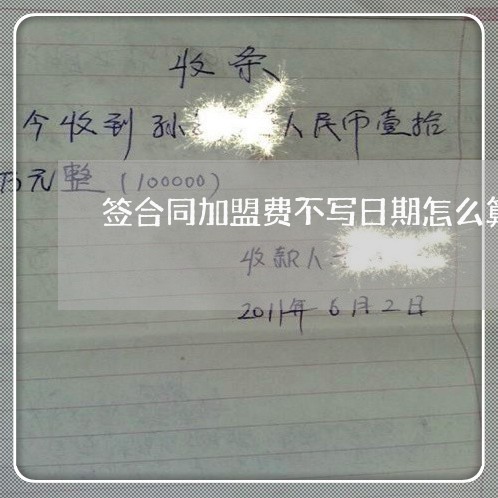 收条
今收到孙 人民币壹拾
万元整(100000)
签合同加盟费不写日期怎么算
收款人
2011年6月2日